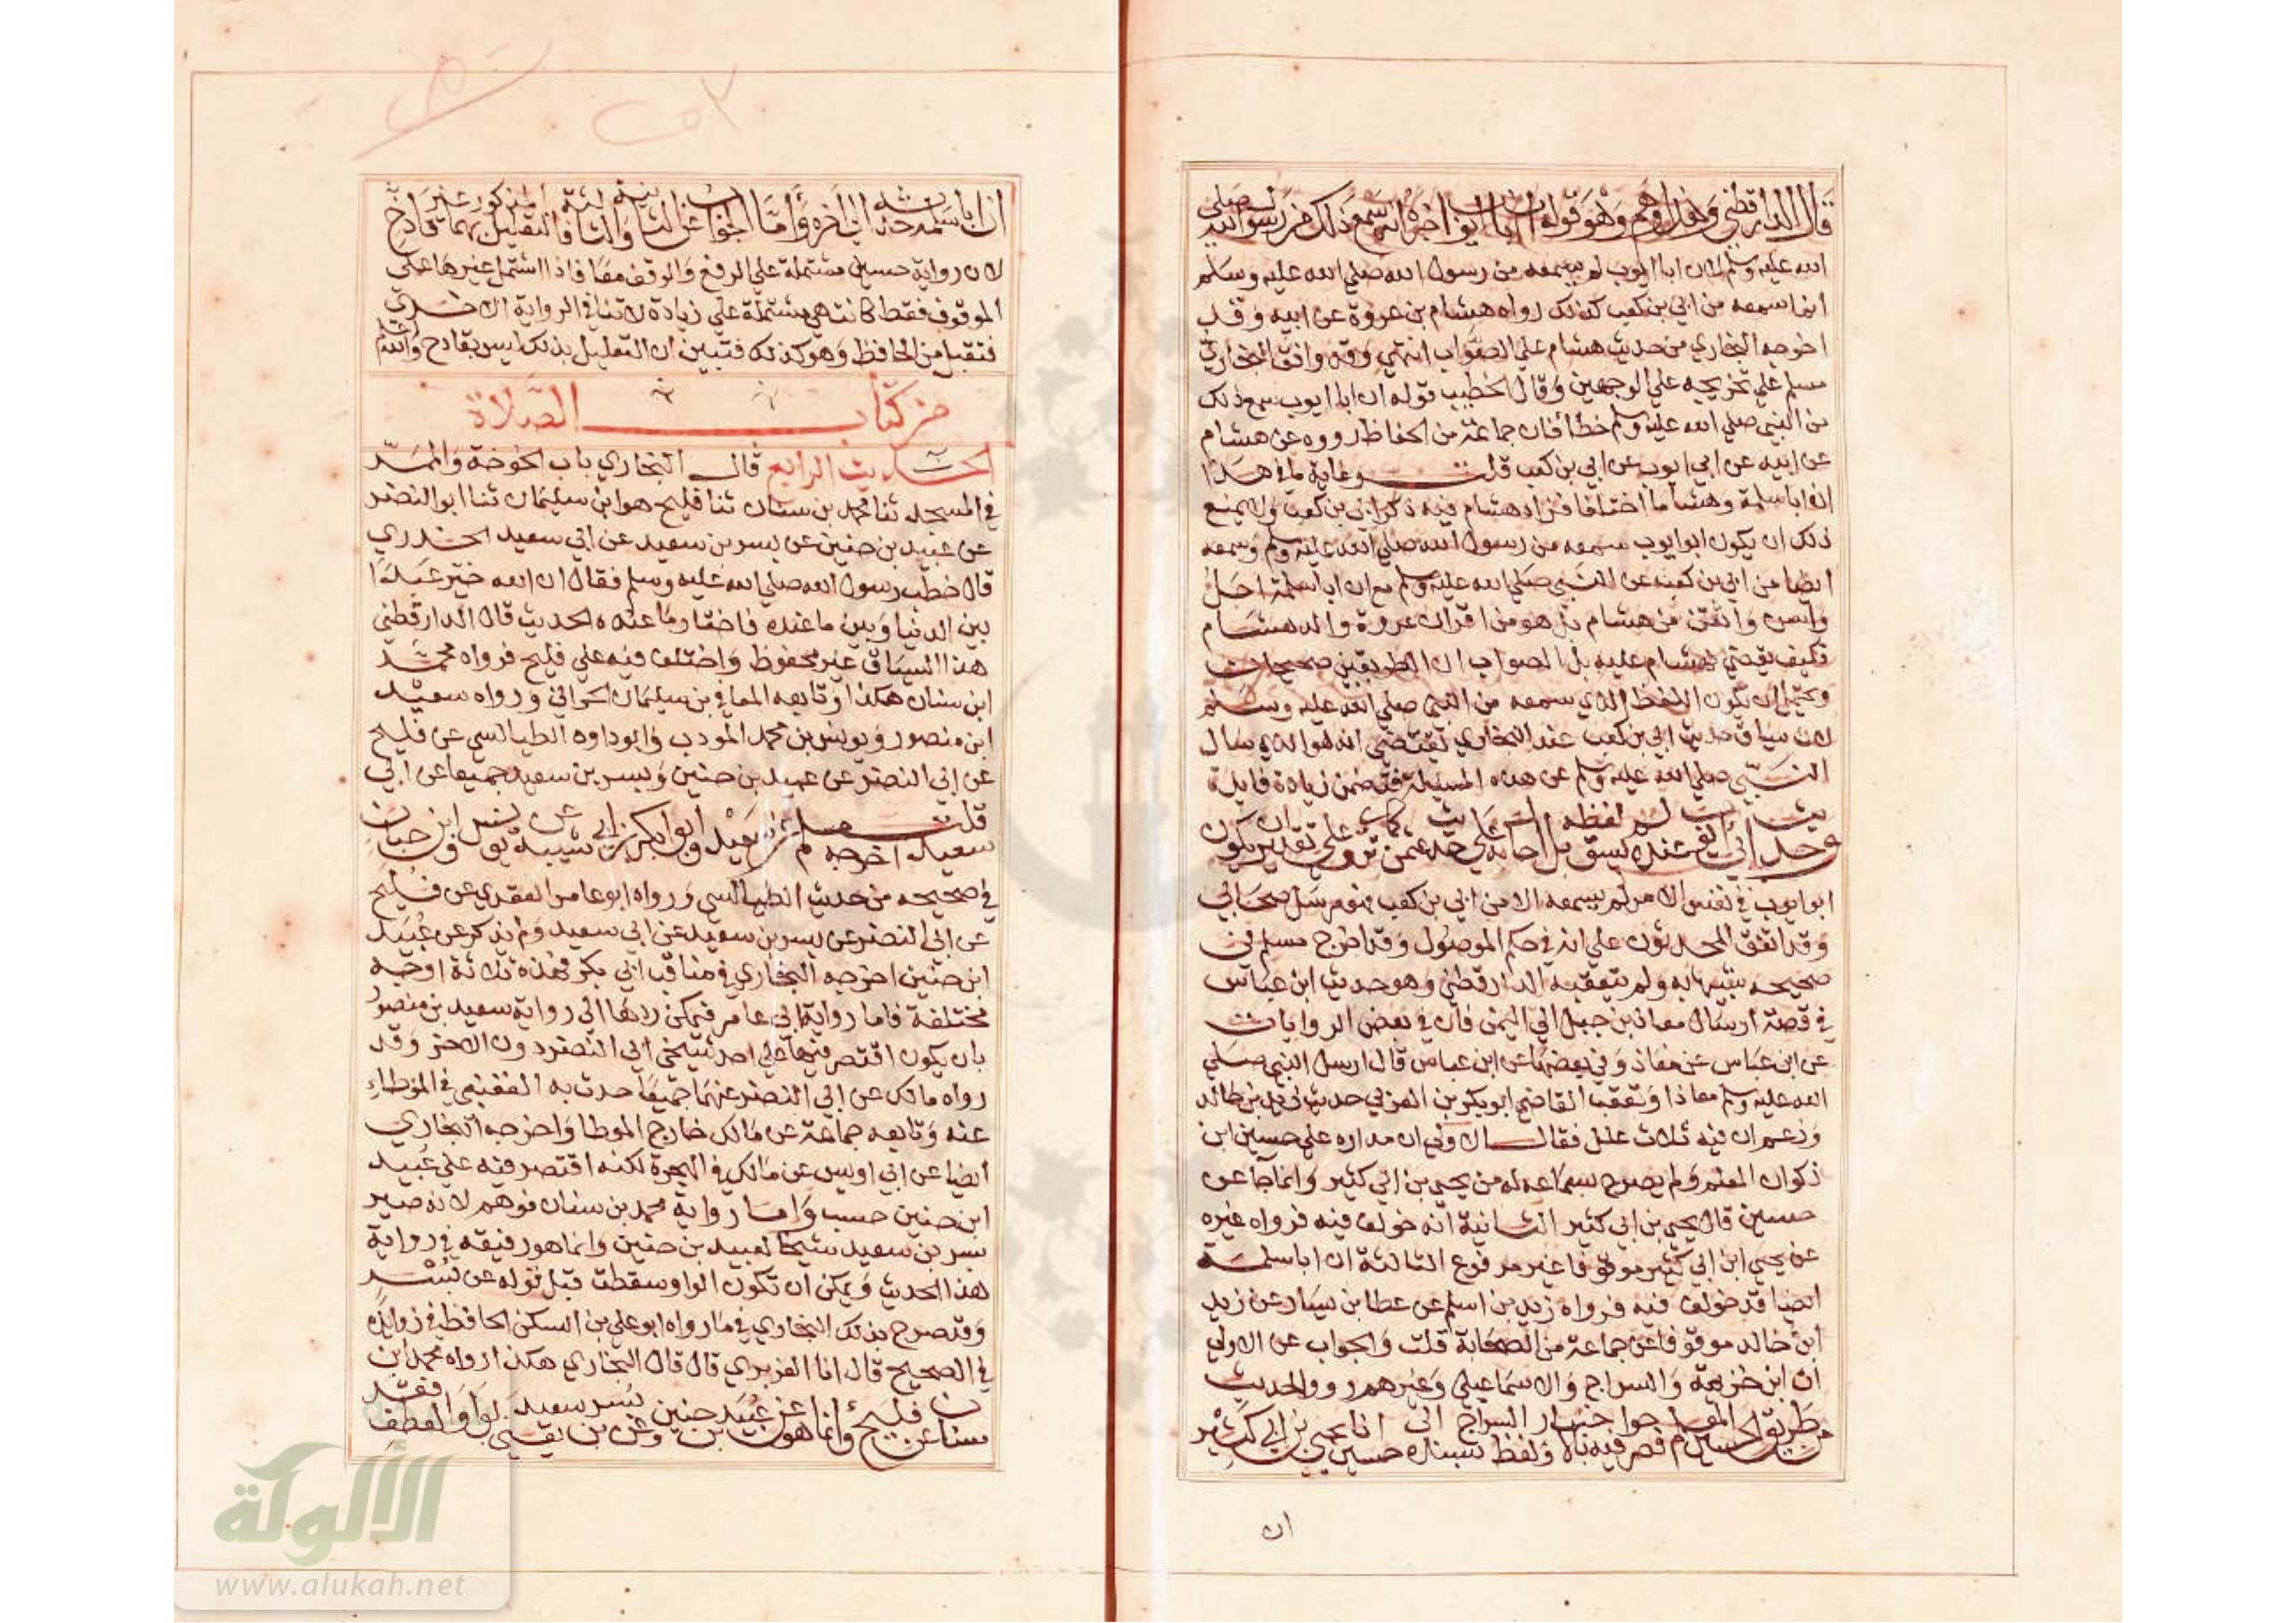 قال الدارقطني وهذا وهم وهو قوله ان ابا ايوب اخبره انه سمع ذلك من رسول الله صلي
الله عليه وسلم لان ابا ايوب لم يسمعه من رسول الله صلي الله عليه وسلم
انما سمعه من ابي بن كعب كذلك رواه هشام بن عروة عن ابيه وقد
اخرجه البخاري من حديث هشام علي الصواب انتهي وقد وافق البخاري
مسلم علي تخريجه علي الوجهين وقال الخطيب قوله ان ابا ايوب سمع ذلك
من النبي صلي الله عليه وسلم خطأ فان جماعة من الحفاظ رووه عن هشام
عن ابيه عن ابي ايوب عن ابي بن كعب قلت وغاية ما في هذا
ان ابا سلمة وهشاما اختلفا فزاد هشام فيه ذكر ابي بن كعب ولا يمنع
ذلك ان يكون ابو ايوب سمعه من رسول الله صلي الله عليه وسلم وسمعه
ايضا من ابي بن كعب عن النبي صلي الله عليه وسلم مع ان ابا سلمة اجل
واسن واتقن من هشام بل هو من اقران عروة والد هشام
فكيف يقضي لهشام عليه بل الصواب ان الطريقين صحيحان
ويحتمل ان يكون اللفظ الذي سمعه من النبي صلي الله عليه وسلم
لان سياق حديث ابي بن كعب عند البخاري يقتضي انه هو الذي سال
النبي صلي الله عليه وسلم عن هذه المسئلة فتضمن زيادة فايدة
وحديث ابي ايوب عنده لم يسق لفظه بل احاله علي حديث عثمن كما تري وعلي تقدير ان يكون
ابو ايوب في نفس الامر لم يسمعه الا من ابي بن كعب فهو مرسل صحابي
وقد اتفق المحدثون علي انه في حكم الموصول وقد اخرج مسلم في
صحيحه شبيها به ولم يتعقبه الدارقطني وهو حديث ابن عباس
في قصة ارسال معاذ بن جبل الي اليمن فان في بعض الروايات
عن ابن عباس عن معاذ وفي بعضها عن ابن عباس قال ارسل النبي صلي
الله عليه وسلم معاذا وتعقب القاضي ابو بكر بن العربي حديث زيد بن خالد
وزعم ان فيه ثلاث علل فقال الاولي ان مداره علي حسين ابن
ذكوان المعلم ولم يصرح بسماعه له من يحيي بن ابي كثير وانما جا عن
حسين قال يحيي بن ابي كثير الثانية انه خولف فيه فرواه غيره
عن يحيي ابن ابي كثير موقوفا غير مرفوع الثالثة ان ابا سلمة
ايضا قد خولف فيه فرواه زيد بن اسلم عن عطا بن يسار عن زيد
ابن خالد موقوفا عن جماعة من الصحابة قلت والجواب عن الاولي
ان ابن خزيمة والسراج والاسماعيلي وغيرهم رووا الحديث
من طريق الحسين المعلم فصرحوا فيه بالاخبار ولفظ السراج بسنده الي حسين انا يحيي بن ابي كثير
ان
ان ابا سلمة حدثه الي اخره واما الجواب عن الثانية والثالثة فالتعليل المذكور بهما غير قادح
لان رواية حسين مشتملة علي الرفع والوقف معا فاذا اشتمل غيرها علي
الموقوف فقط كانت هي مشتملة علي زيادة لا تنافي الرواية الاخري
فتقبل من الحافظ وهو كذلك فتبين ان التعليل بذلك ليس بقادح والله اعلم
من كتاب الصلاة
الحديث الرابع قال البخاري باب الخوخة والممر
في المسجد ثنا محمد بن سنان ثنا فليح هو ابن سليمان ثنا ابو النضر
عن عبيد بن حنين عن بسر بن سعيد عن ابي سعيد الخدري
قال خطب رسول الله صلي الله عليه وسلم فقال ان الله خير عبدا
بين الدنيا وبين ما عنده فاختار ما عنده الحديث قال الدارقطني
هذا السياق غير محفوظ واختلف فيه علي فليح فرواه محمد
ابن سنان هكذا وتابعه المعافي بن سليمان الحراني ورواه سعيد
ابن منصور ويونس بن محمد المودب وابو داود الطيالسي عن فليح
عن ابي النضر عن عبيد بن حنين وبسر بن سعيد جميعا عن ابي
سعيد قلت اخرجه مسلم عن سعيد وابو بكر بن ابي شيبة عن يونس وابن حبان
في صحيحه من حديث الطيالسي ورواه ابو عامر العقدي عن فليح
عن ابي النضر عن بسر بن سعيد عن ابي سعيد ولم يذكر عن عبيد
ابن حنين اخرجه البخاري في مناقب ابي بكر فهذه ثلاثة اوجه
مختلفة فاما رواية ابي عامر فيمكن ردها الي رواية سعيد بن منصور
بان يكون اقتصر فيها علي احد شيخي ابي النضر دون الاخر وقد
رواه مالك عن ابي النضر عنهما جميعا حدث به القعنبي في الموطاء
عنه وتابعه جماعة عن مالك خارج الموطا واخرجه البخاري
ايضا عن ابي اويس عن مالك في الهجرة لكنه اقتصر فيه علي عبيد
ابن حنين حسب واما رواية محمد بن سنان فوهم لانه صير
بسر بن سعيد شيخا لعبيد بن حنين وانما هو رفيقه في رواية
هذا الحديث ويمكن ان تكون الواو سقطت قبل قوله عن بسر
وقد صرح بذلك البخاري في ما رواه ابو علي بن السكن الحافظ في زوايده
في الصحيح قال انا الفربري قال قال البخاري هكذا رواه محمد ابن
سنان عن فليح وانما هو عن عبيد بن حنين وعن بسر بن سعيد يعني بواو العطف فقد
الألولة
www.alukah.net